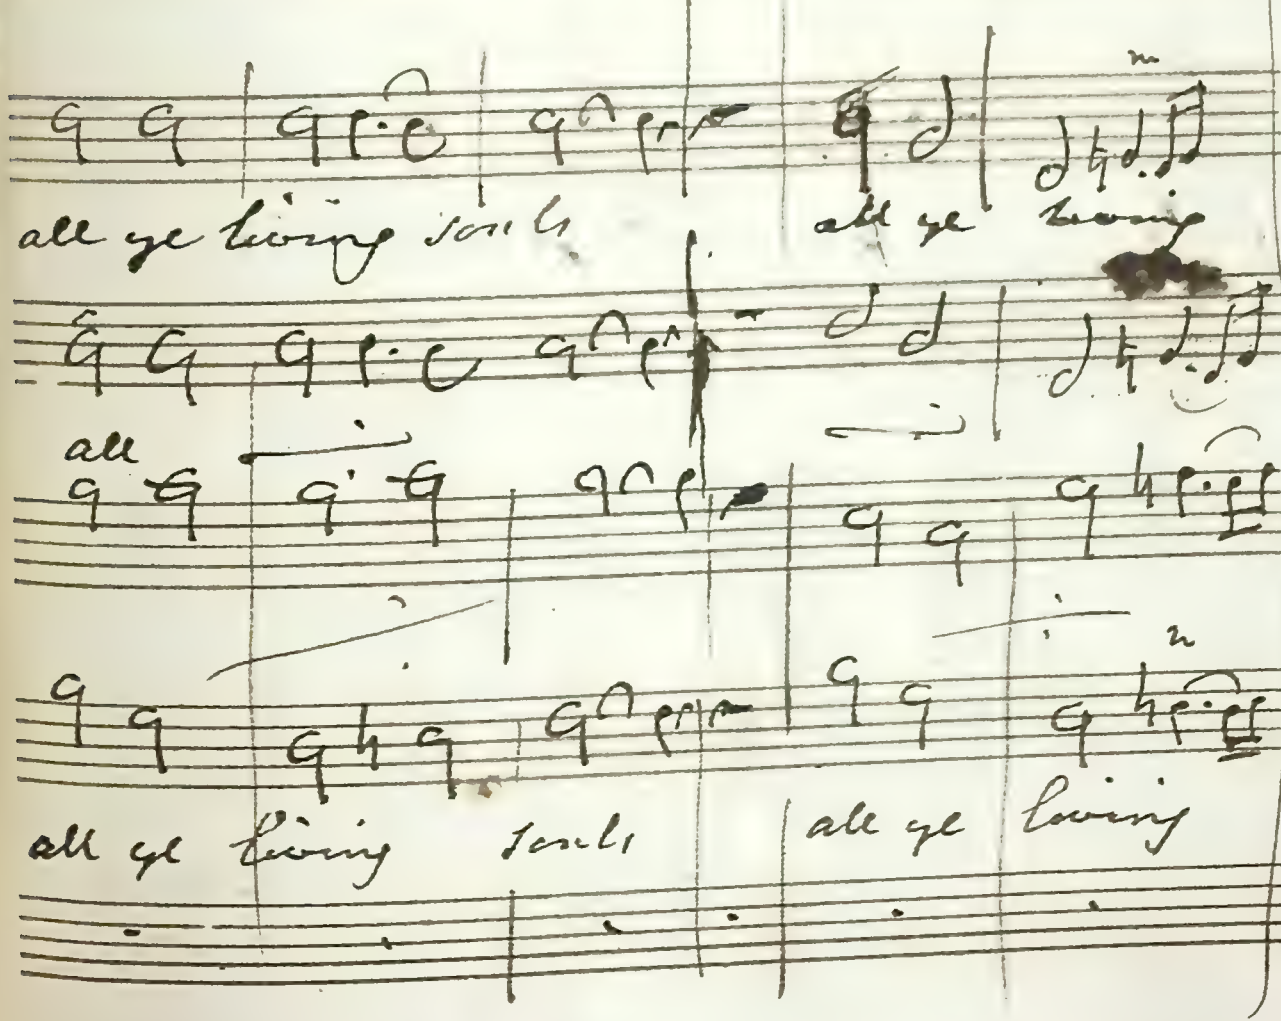 all ye living souls all ye living
all
all ye living souls all ye living